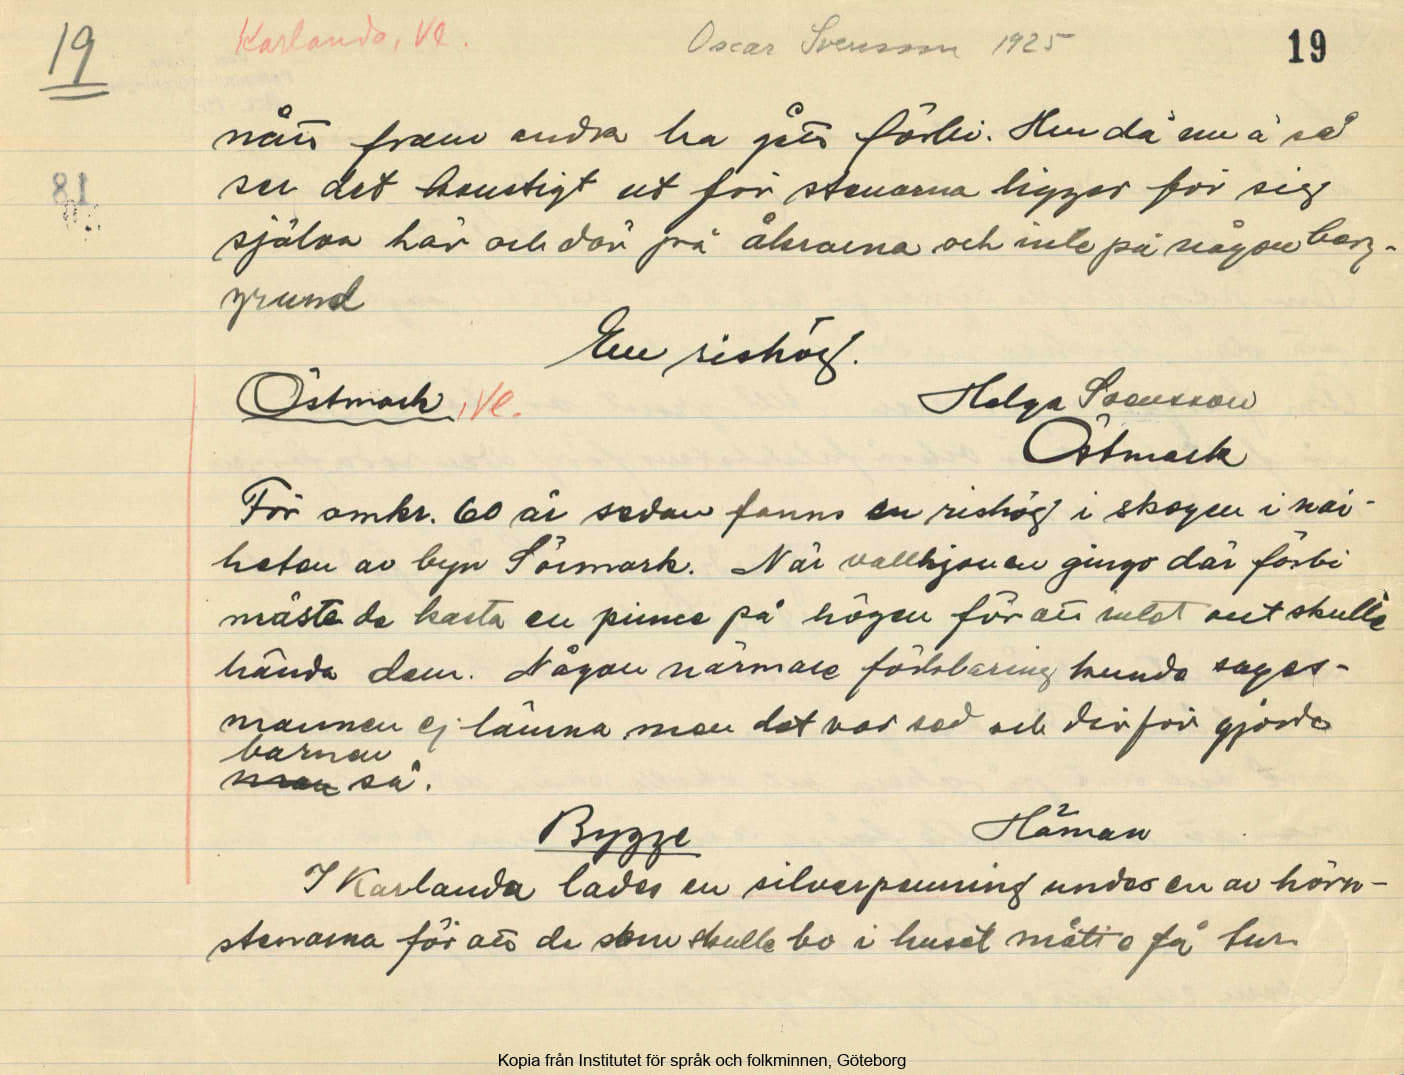 19 Karlanda, Vl. Oscar Svensson 1925 19
nått fram andra ha gått förbi. Hur dä nu ä så
ser det konstigt ut för stenarna ligger för sig
själva här och där på åkrarna och inte på någon berg-
grund
En rishög.
Östmark, Vl. Helga Svensson
Östmark
För omkr. 60 år sedan fanns en rishög i skogen i när-
heten av byn Sörmark. När vallhjonen gingo där förbi
måste de kasta en pinne på högen för att intet ont skulle
hända dem. Någon närmare förklaring kunde sages-
mannen ej lämna men det var sed och därför gjorde
barnen
man så.
Bygge Häman
I Karlanda lades en silverpenning under en av hörn-
stenarna för att de som skulle bo i huset måtte få tur
18
Kopia från Institutet för språk och folkminnen, Göteborg